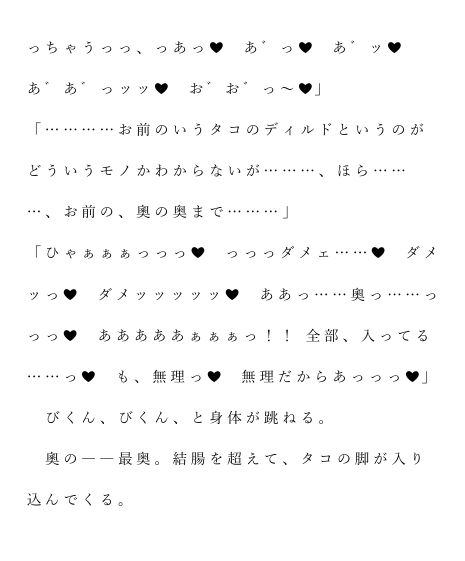 っちゃうっっ、っあっ♥　あ゛っ♥　あ゛ッ♥
あ゛あ゛っッッ♥　お゛お゛っ～♥」
「…………お前のいうタコのディルドというのが
どういうモノかわからないが………、ほら……
…、お前の、奥の奥まで………」
「ひゃぁぁぁっっっ♥　っっっダメェ……♥　ダメ
ッっ♥　ダメッッッッッ♥　ああっ……奥っ……っ
っっ♥　あああああぁぁぁっ！！ 全部、入ってる
……っ♥　も、無理っ♥　無理だからあっっっ♥」
　びくん、びくん、と身体が跳ねる。
　奥の――最奥。結腸を超えて、タコの脚が入り
込んでくる。